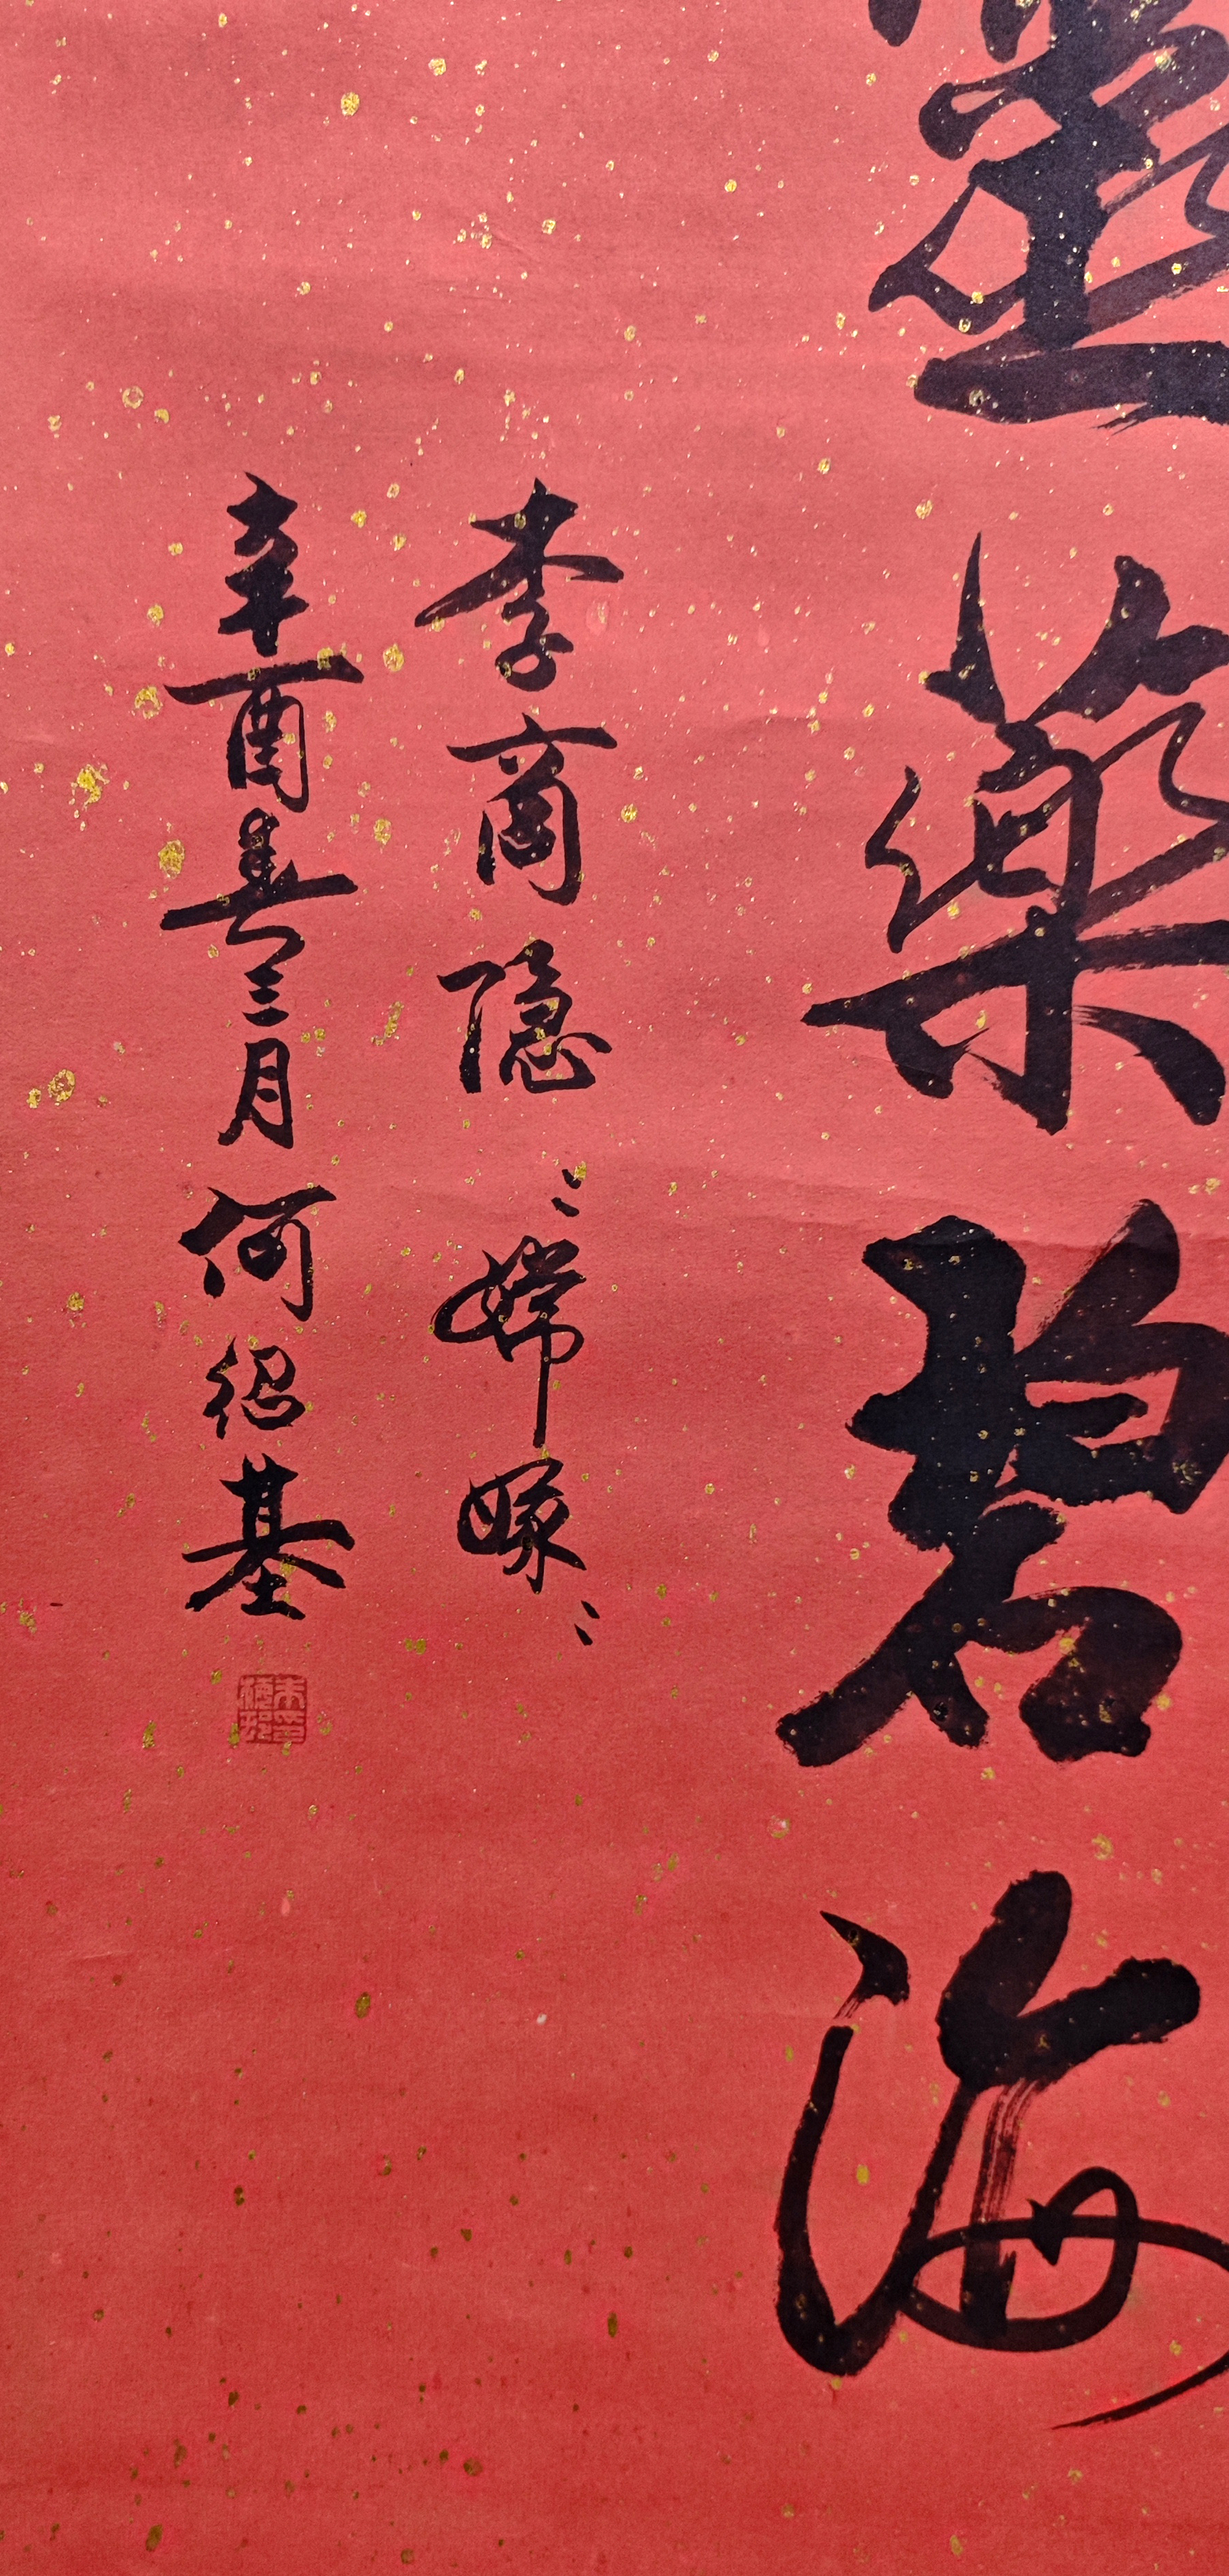 靈藥碧海
李商隐：嫦娥：
辛酉春三月何紹基